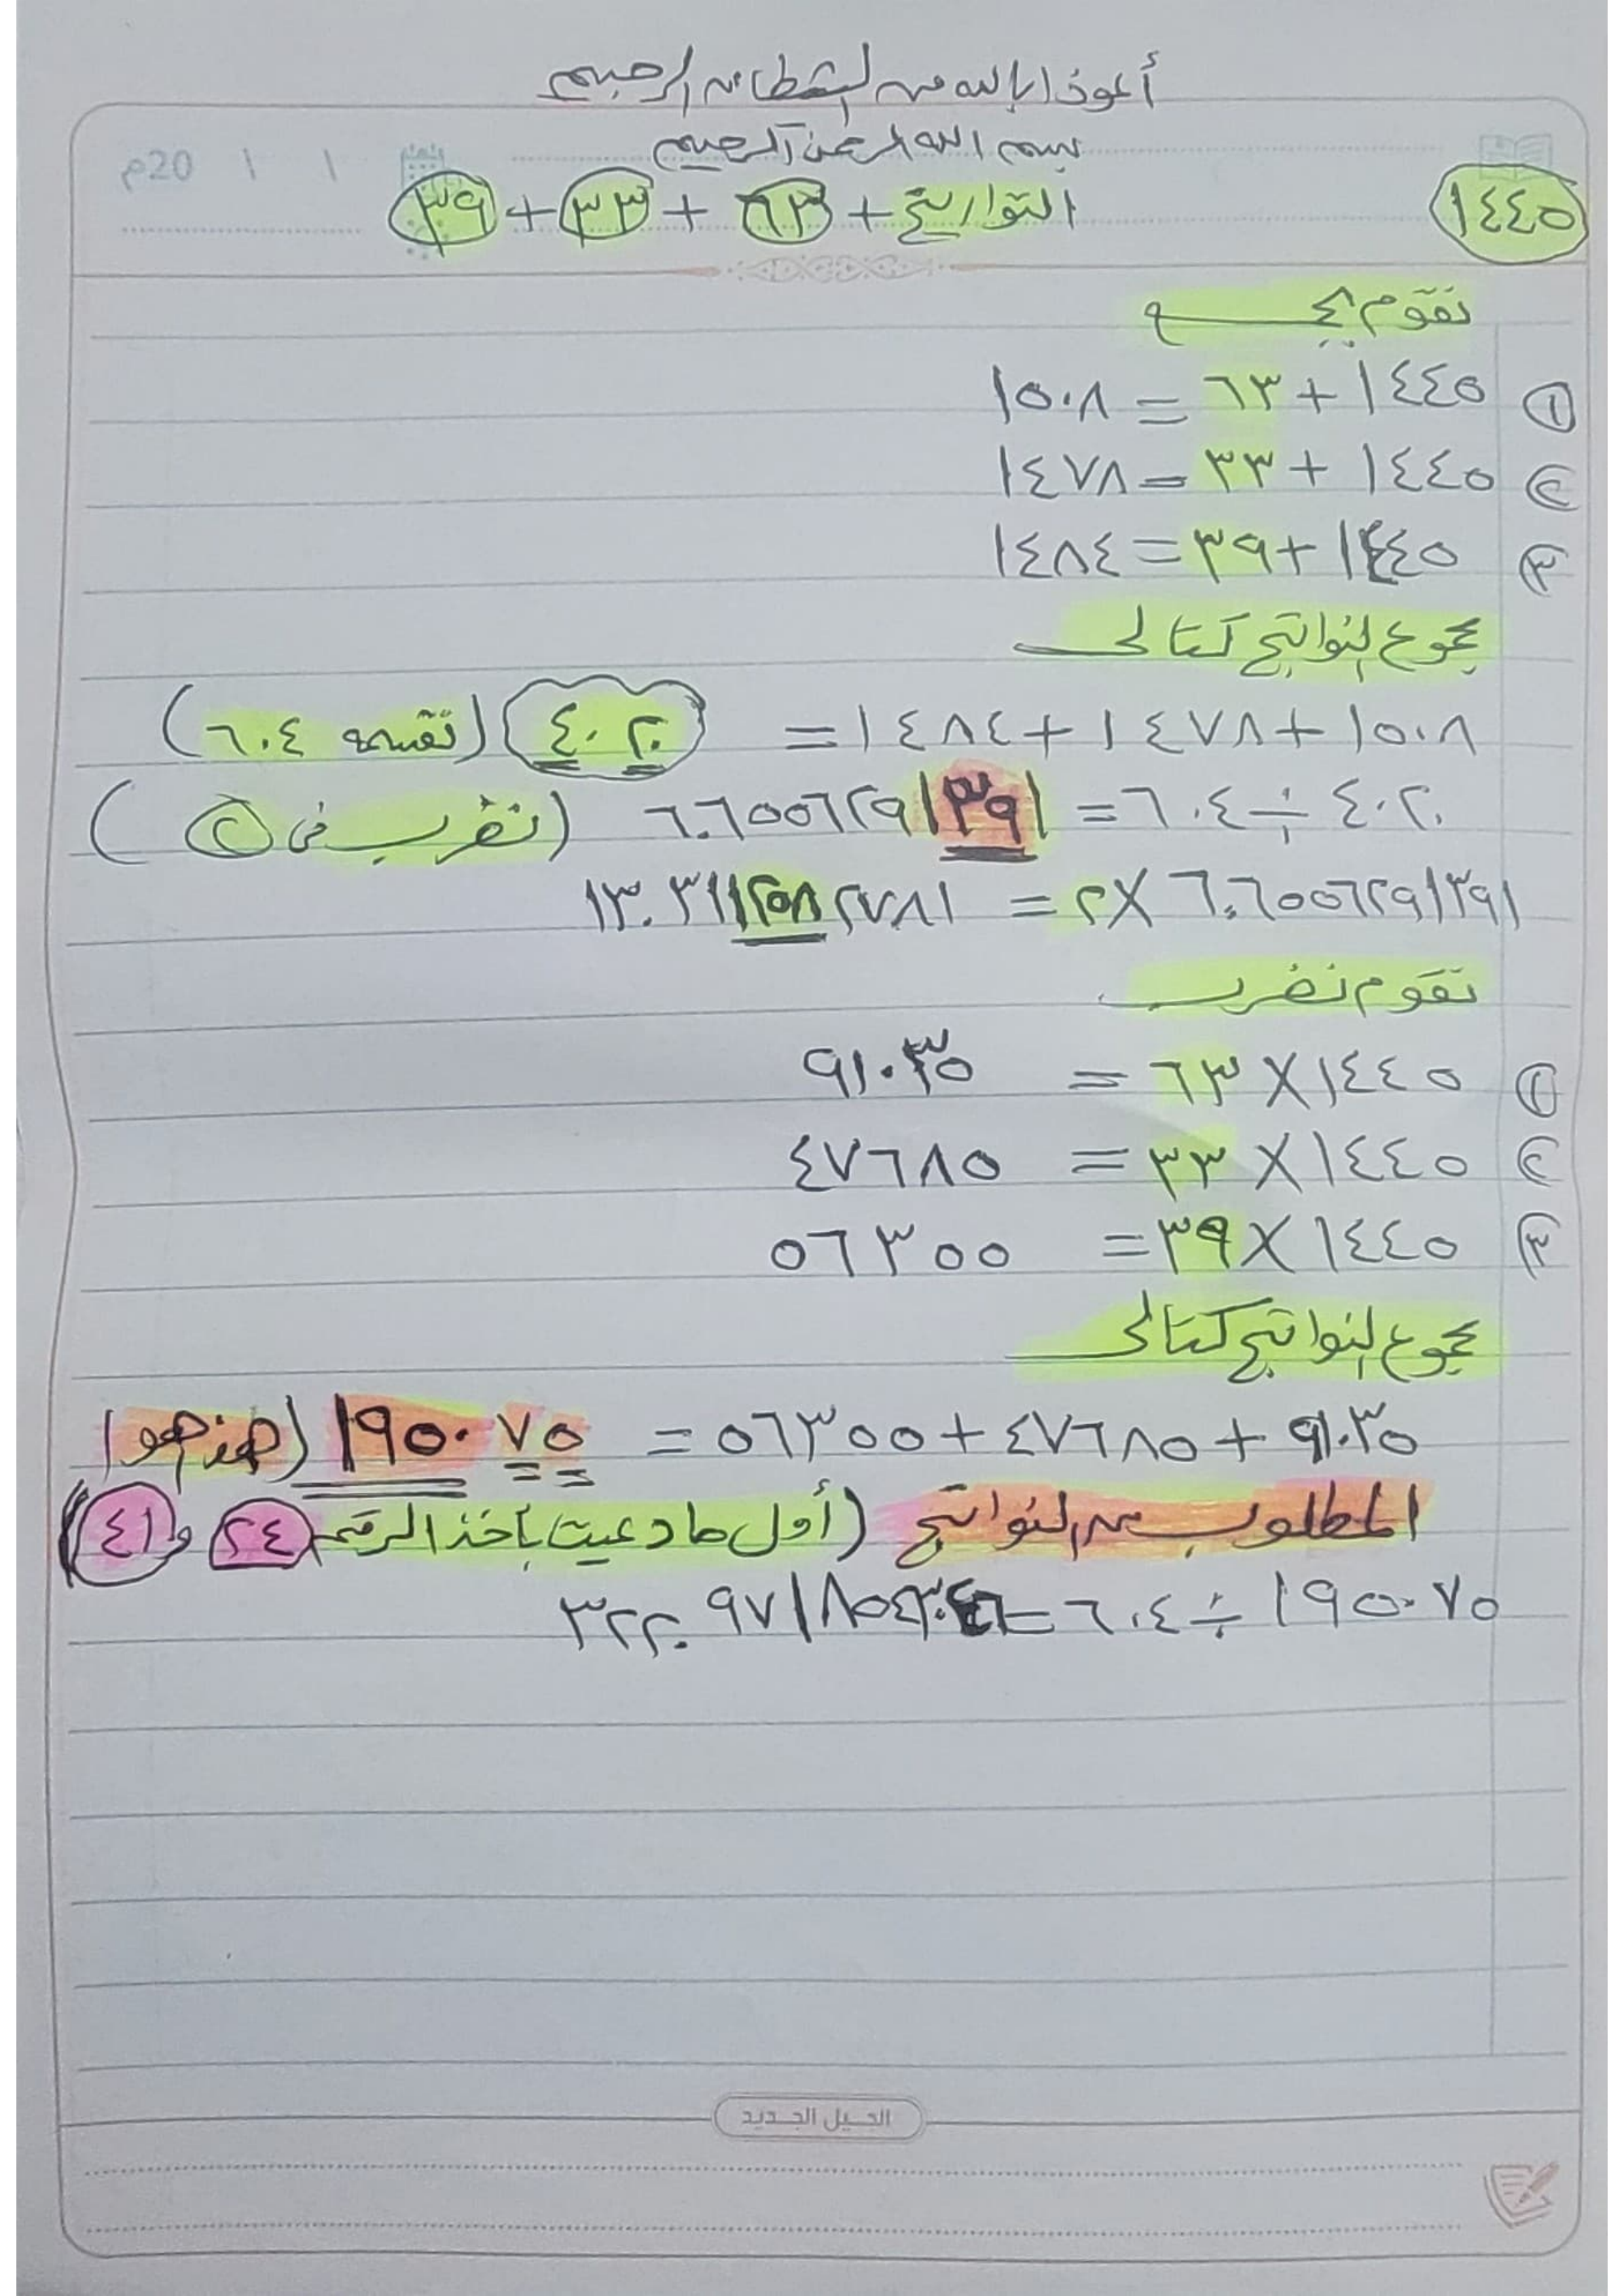 أعوذ بالله من الشيطان الرجيم
بسم الله الرحمن الرحيم
م20 / /
١٤٤٥
التواريخ + ٦٣ + ٣٣ + ٣٩
نقوم بجمع
① ١٤٤٥ + ٦٣ = ١٥٠٨
② ١٤٤٥ + ٣٣ = ١٤٧٨
③ ١٤٤٥ + ٣٩ = ١٤٨٤
مجموع النواتج كتالى
١٥٠٨ + ١٤٧٨ + ١٤٨٤ = ٤٠٢٠ (نقسمه ٦٠٤)
٤٠٢٠ ÷ ٦٠٤ = ٦.٦٥٥٦٢٩١٣٩١ (نضرب فى ②)
٦.٦٥٥٦٢٩١٣٩١ × ٢ = ١٣.٣١١٢٥٨٢٧٨١
نقوم نضرب
① ١٤٤٥ × ٦٣ = ٩١٠٣٥
② ١٤٤٥ × ٣٣ = ٤٧٦٨٥
③ ١٤٤٥ × ٣٩ = ٥٦٣٥٥
مجموع النواتج كتالى
٩١٠٣٥ + ٤٧٦٨٥ + ٥٦٣٥٥ = ١٩٥٠٧٥ (هذا هوا
المطلوب من النواتج (أول ما دعيت بأخذ الرقم ٢٤ و ٤١)
١٩٥٠٧٥ ÷ ٦٠٤ =
الجيل الجديد